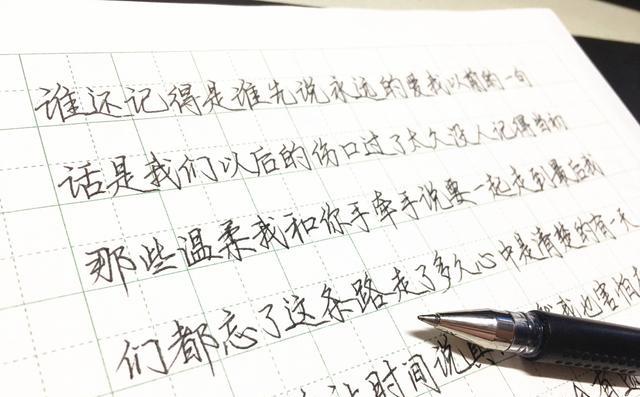 谁还记得是谁先说永远的爱我以前的一句
话是我们以后的伤口过了太久没人记得当初
那些温柔我和你手牵手说要一起走到最后我
们都忘了这条路走了多久心中是清楚的有一天
让时间说真 我也害怕